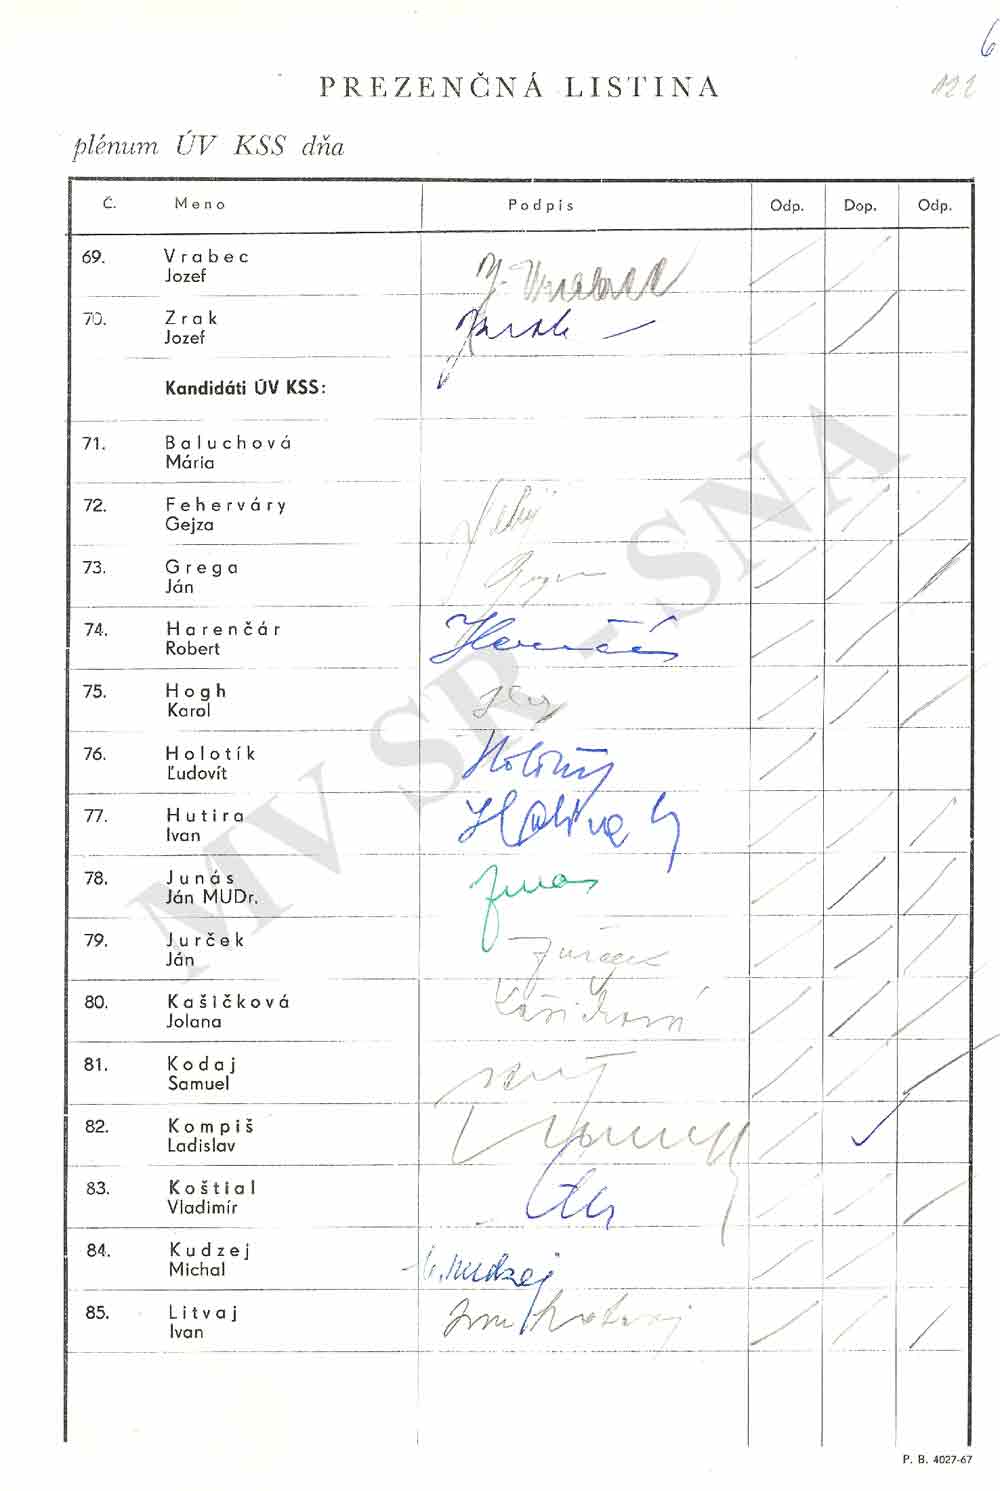 6
122
PREZENČNÁ LISTINA
plénum ÚV KSS dňa
Č. Meno Podpis Odp. Dop. Odp.
69. Vrabec J. Vrabec
Jozef
70. Zrak Zrak
Jozef
Kandidáti ÚV KSS:
71. Baluchová
Mária
72. Feherváry
Gejza
73. Grega
Ján
74. Harenčár
Robert
75. Hogh
Karol
76. Holotík
Ľudovít
77. Hutira
Ivan
78. Junás Junas
Ján MUDr.
79. Jurček
Ján
80. Kašičková Kašičková
Jolana
81. Kodaj
Samuel
82. Kompiš
Ladislav
83. Koštial
Vladimír
84. Kudzej Kudzej
Michal
85. Litvaj
Ivan
MV SR - SNA
P. B. 4027-67